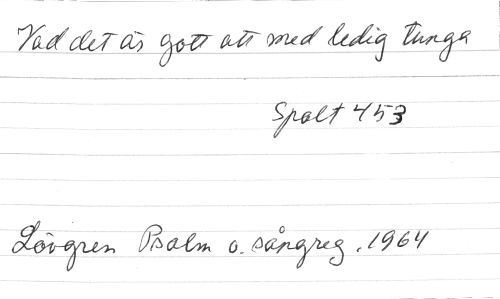 Vad det är gott att med ledig tunga
Spalt 453
Lövgren Psalm o. sångreg. 1964